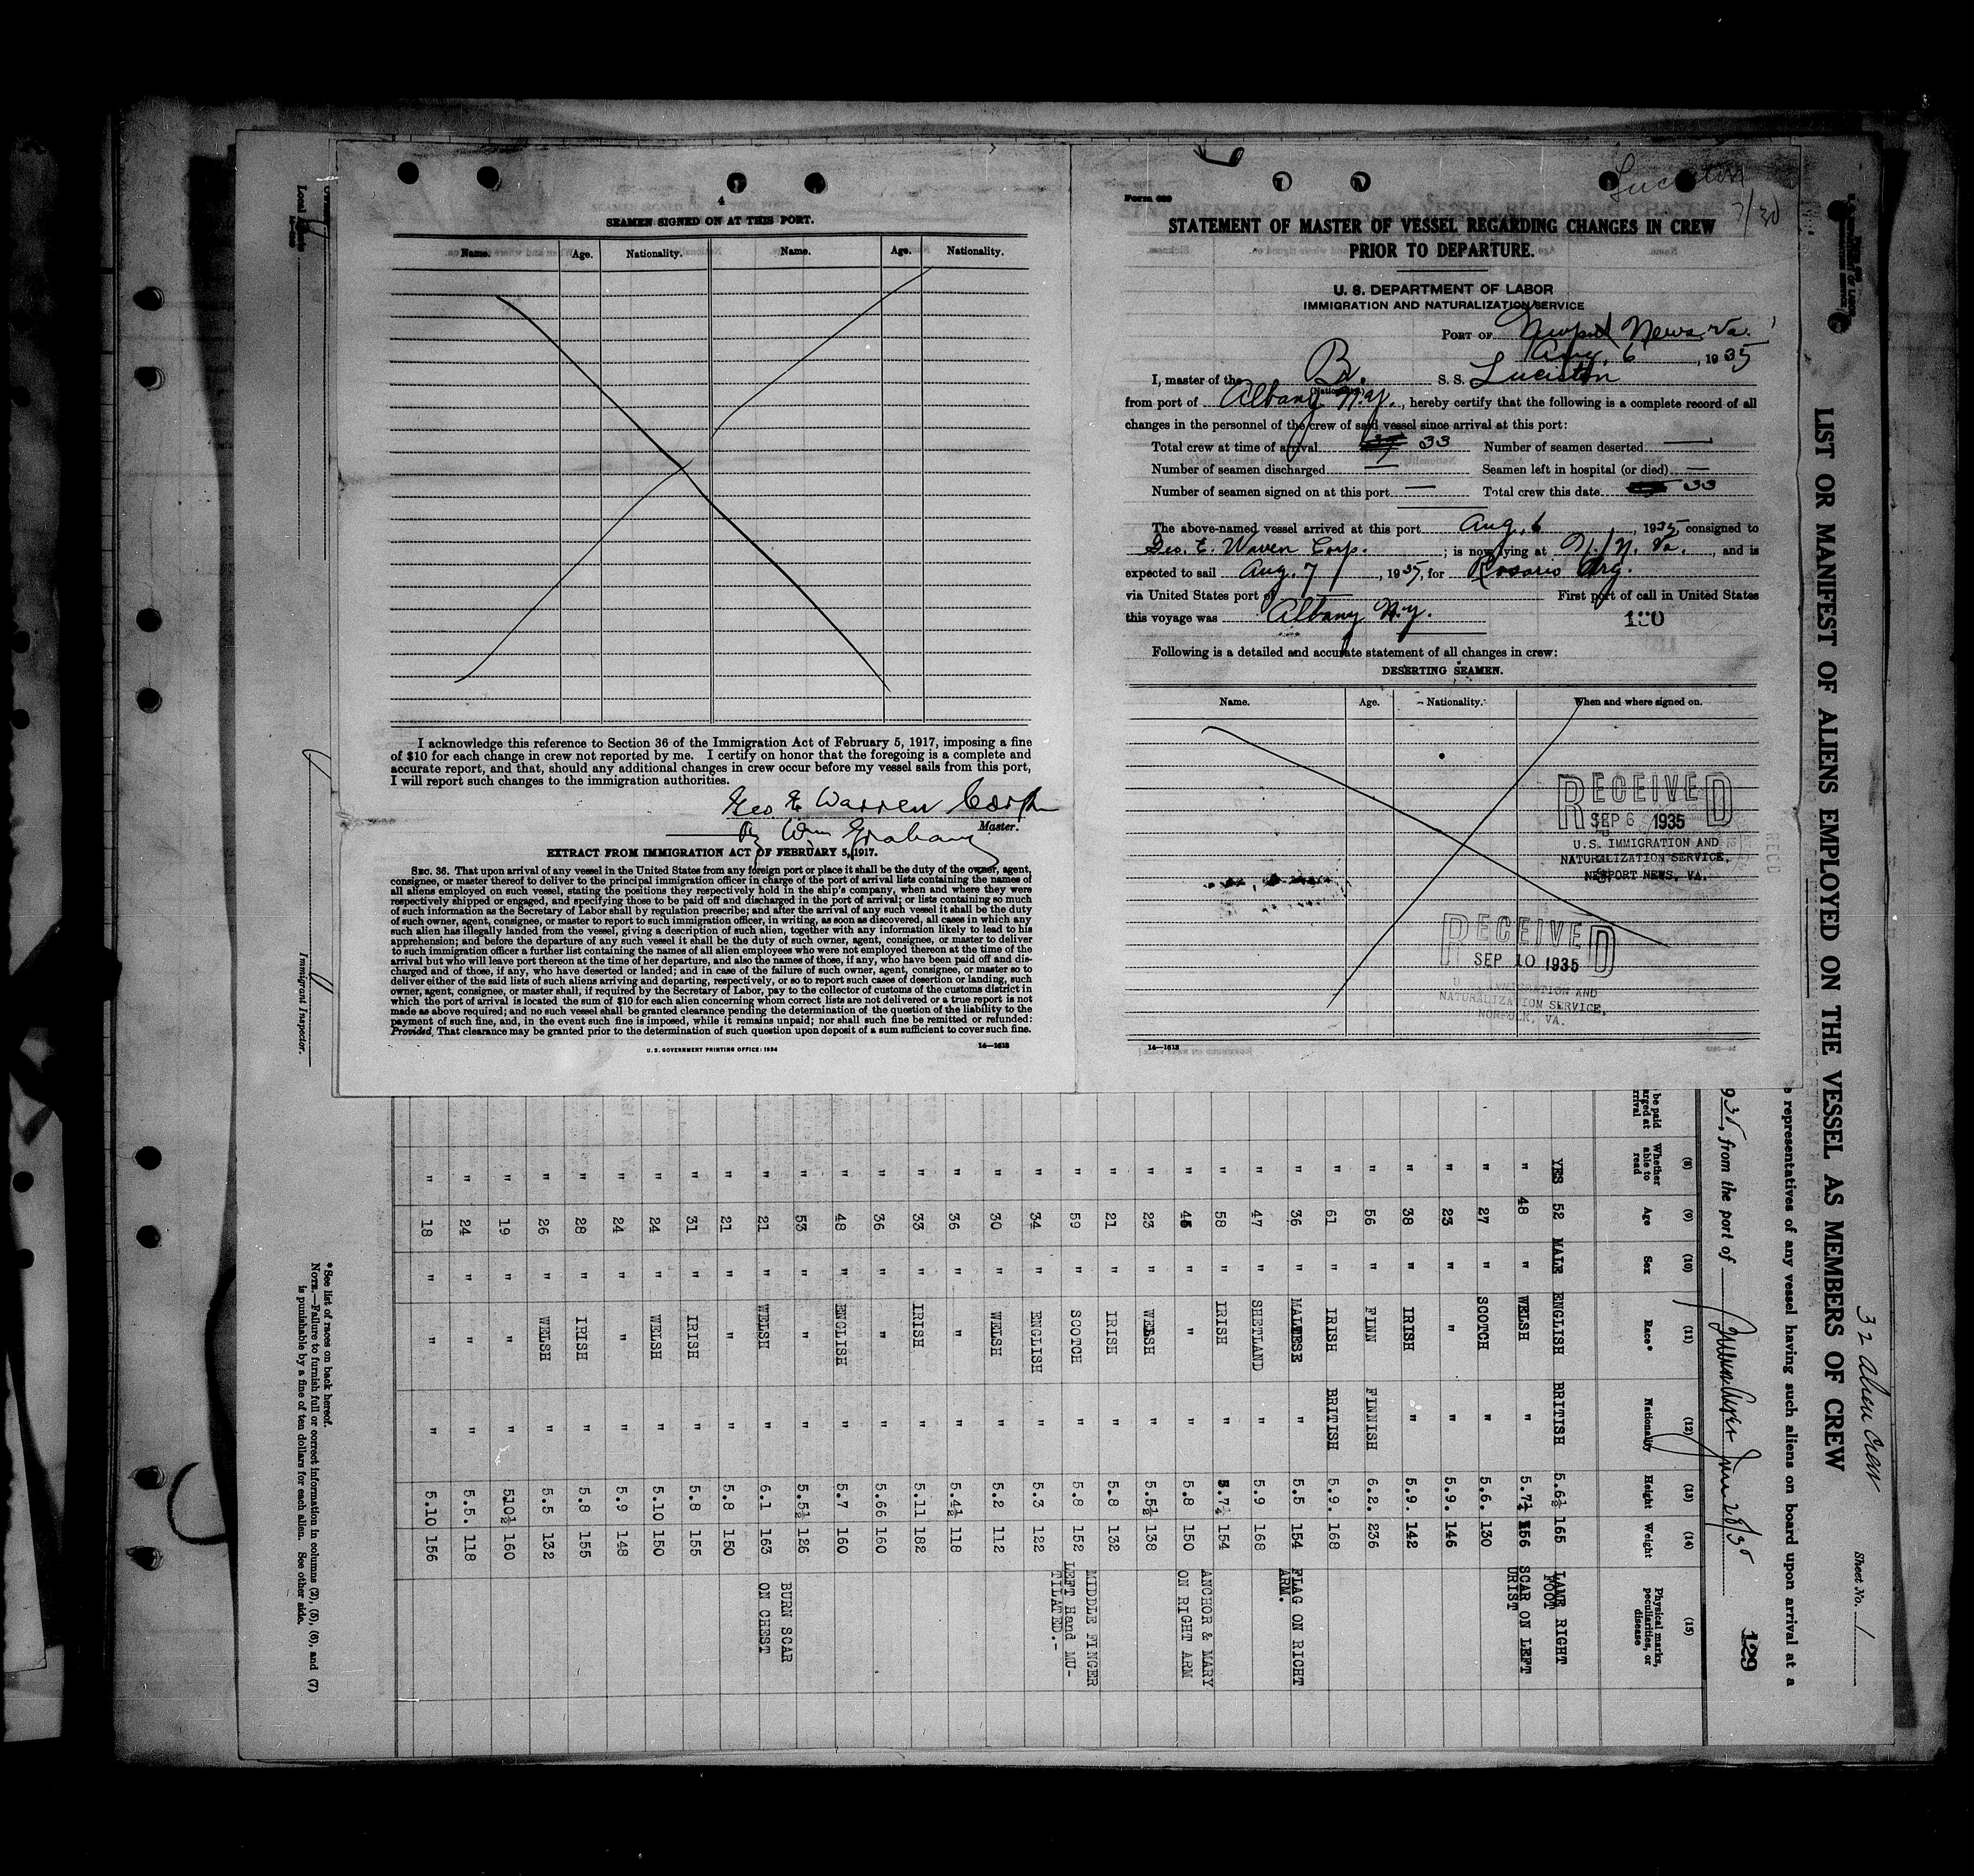 4
SEAMEN SIGNED ON AT THIS PORT.
Name. Age. Nationality. Name. Age. Nationality.
I acknowledge this reference to Section 36 of the Immigration Act of February 5, 1917, imposing a fine
of $10 for each change in crew not reported by me. I certify on honor that the foregoing is a complete and
accurate report, and that, should any additional changes in crew occur before my vessel sails from this port,
I will report such changes to the immigration authorities.
Geo E Warren Corp
By Wm Graham
Master.
EXTRACT FROM IMMIGRATION ACT OF FEBRUARY 5, 1917.
SEC. 36. That upon arrival of any vessel in the United States from any foreign port or place it shall be the duty of the owner, agent,
consignee, or master thereof to deliver to the principal immigration officer in charge of the port of arrival lists containing the names of
all aliens employed on such vessel, stating the positions they respectively hold in the ship's company, when and where they were
respectively shipped or engaged, and specifying those to be paid off and discharged in the port of arrival; or lists containing so much
of such information as the Secretary of Labor shall by regulation prescribe; and after the arrival of any such vessel it shall be the duty
of such owner, agent, consignee, or master to report to such immigration officer, in writing, as soon as discovered, all cases in which any
such alien has illegally landed from the vessel, giving a description of such alien, together with any information likely to lead to his
apprehension; and before the departure of any such vessel it shall be the duty of such owner, agent, consignee, or master to deliver
to such immigration officer a further list containing the names of all alien employees who were not employed thereon at the time of the
arrival but who will leave port thereon at the time of her departure, and also the names of those, if any, who have been paid off and dis-
charged and of those, if any, who have deserted or landed; and in case of the failure of such owner, agent, consignee, or master so to
deliver either of the said lists of such aliens arriving and departing, respectively, or so to report such cases of desertion or landing, such
owner, agent, consignee, or master shall, if required by the Secretary of Labor, pay to the collector of customs of the customs district in
which the port of arrival is located the sum of $10 for each alien concerning whom correct lists are not delivered or a true report is not
made as above required; and no such vessel shall be granted clearance pending the determination of the question of the liability to the
payment of such fine, and, in the event such fine is imposed, while it remains unpaid; nor shall such fine be remitted or refunded:
Provided, That clearance may be granted prior to the determination of such question upon deposit of a sum sufficient to cover such fine.
U. S. GOVERNMENT PRINTING OFFICE: 1934
14—1613
Luciston
7/30
Form 689
STATEMENT OF MASTER OF VESSEL REGARDING CHANGES IN CREW
PRIOR TO DEPARTURE.
U. S. DEPARTMENT OF LABOR
IMMIGRATION AND NATURALIZATION SERVICE
PORT OF Newport News Va.
Aug. 6, 1935
I, master of the Br. S. S. Luciston
(Nationality)
from port of Albany N.Y., hereby certify that the following is a complete record of all
changes in the personnel of the crew of said vessel since arrival at this port:
Total crew at time of arrival 33 Number of seamen deserted —
Number of seamen discharged — Seamen left in hospital (or died) —
Number of seamen signed on at this port — Total crew this date 33
The above-named vessel arrived at this port Aug. 6, 1935 consigned to
Geo. E. Waven Corp.; is now lying at N. N. Va., and is
expected to sail Aug. 7, 1935, for Rosario Arg.
via United States port of — First port of call in United States
this voyage was Albany N.Y.
130
Following is a detailed and accurate statement of all changes in crew:
DESERTING SEAMEN.
Name. Age. Nationality. When and where signed on.
RECEIVED
SEP 6 1935
U.S. IMMIGRATION AND
NATURALIZATION SERVICE,
NEWPORT NEWS, VA.
RECEIVED
SEP 10 1935
U IMMIGRATION AND
NATURALIZATION SERVICE,
NORFOLK, VA.
14—1613
LIST OR MANIFEST OF ALIENS EMPLOYED ON THE VESSEL AS MEMBERS OF CREW
32 alien crew
Sheet No. 1
representatives of any vessel having such aliens on board upon arrival at a
, from the port of
129
(8) (9) (10) (11) (12) (13) (14) (15)
be paid
arged at
rrival
Whether able to read Age Sex Race* Nationality Height Weight Physical marks, peculiarities, or disease
YES 52 MALE ENGLISH BRITISH 5.6½ 165 LAME RIGHT FOOT
" 48 " WELSH " 5.7½ 156 SCAR ON LEFT URIST
" 27 " SCOTCH " 5.6. 130
" 23 " " " 5.9. 146
" 38 " IRISH " 5.9. 142
" 56 " FINN FINNISH 6.2. 236
" 61 " IRISH BRITISH 5.9. 168
" 36 " MALTESE " 5.5 154 FLAG ON RIGHT ARM.
" 47 " SHETLAND " 5.9 168
" 58 " IRISH " 5.7½ 154 ANCHOR & MARY
" 45 " " " 5.8 150 ON RIGHT ARM
" 23 " WELSH " 5.5½ 138
" 21 " IRISH " 5.8 132 MIDDLE FINGER
" 59 " SCOTCH " 5.8 152 LEFT Hand MU-
TILATED.-
" 34 " ENGLISH " 5.3 122
" 30 " WELSH " 5.2 112
" 36 " " " 5.4½ 118
" 33 " IRISH " 5.11 182
" 36 " " " 5.66 160
" 48 " ENGLISH " 5.7 160
" 53 " " " 5.5½ 126 BURN SCAR
" 21 " WELSH " 6.1 163 ON CHEST
" 21 " " " 5.8 150
" 31 " IRISH " 5.8 155
" 24 " WELSH " 5.10 150
" 24 " " " 5.9 148
" 28 " IRISH " 5.8 155
" 26 " WELSH " 5.5 132
" 19 " " " 510½ 160
" 24 " " " 5.5. 118
" 18 " " " 5.10 156
* See list of races on back hereof.
NOTE.—Failure to furnish full or correct information in columns (2), (5), (6), and (7)
is punishable by a fine of ten dollars for each alien. See other side.
Immigrant Inspector.
Local Agents